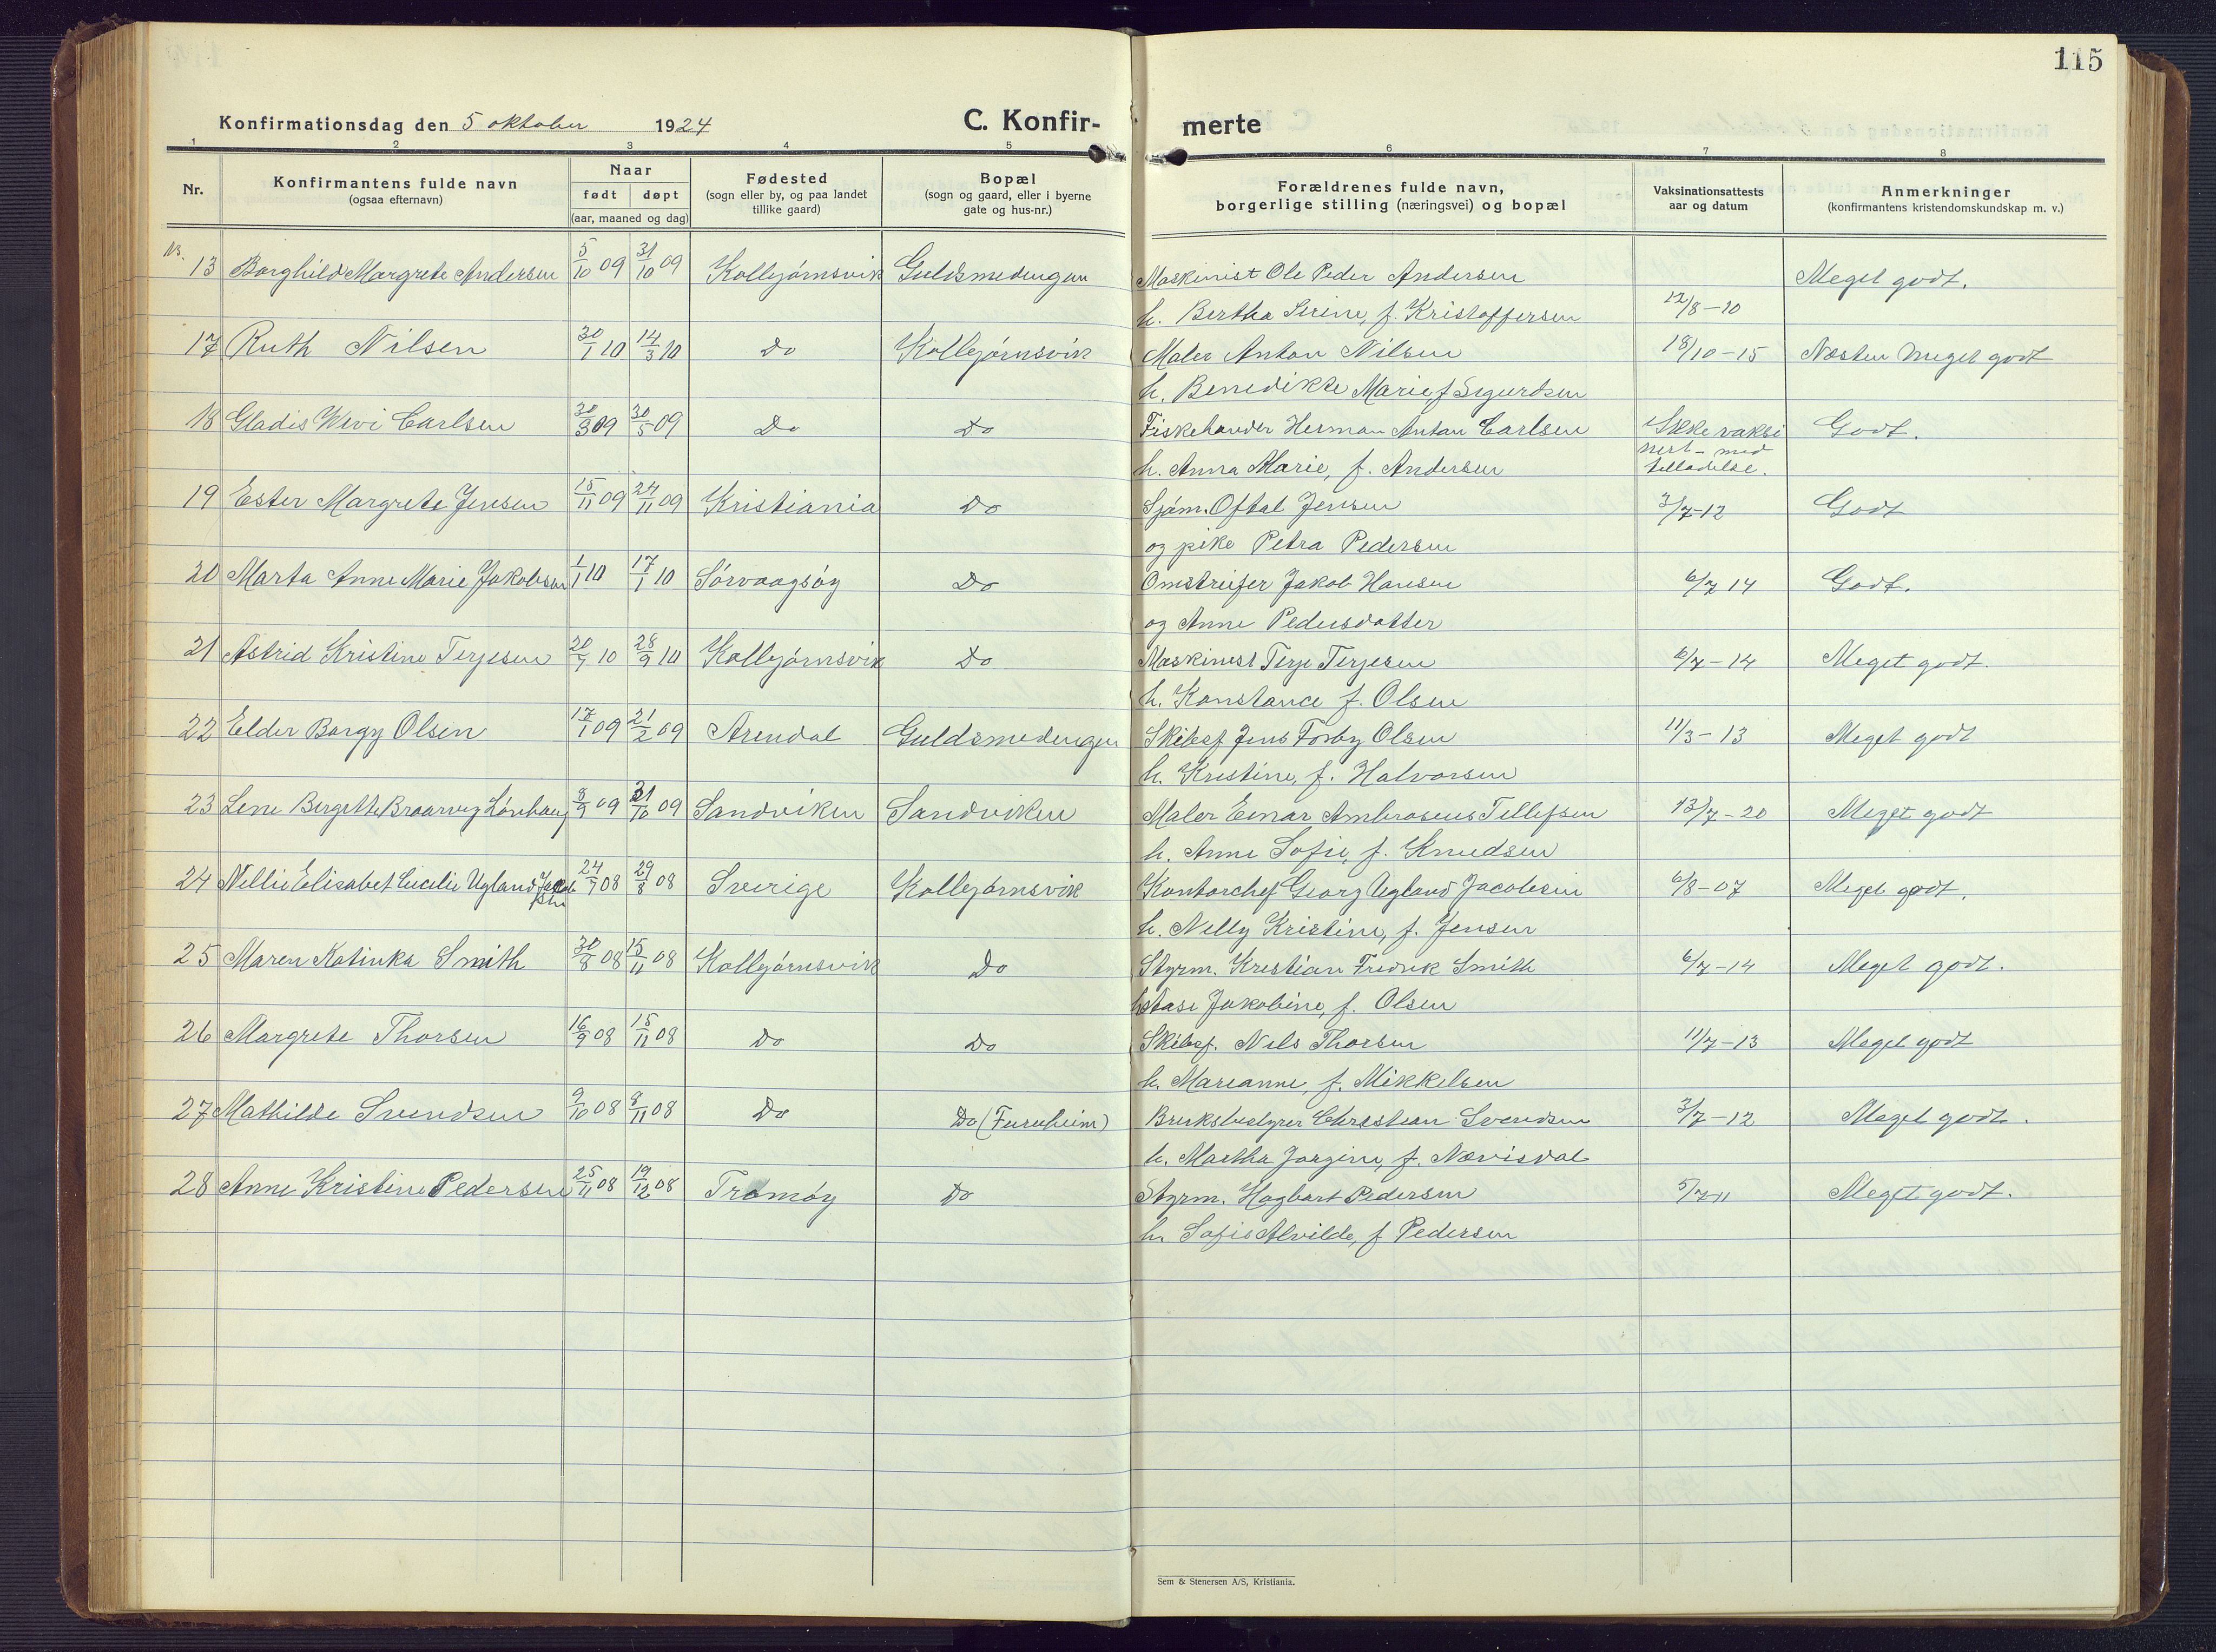 115
Konfirmationsdag den 5 oktober 1924
C. Konfir-
merte
1 2 3 4 5 6 7 8
Nr.
Konfirmantens fulde navn
(ogsaa efternavn)
Naar
født døpt
(aar, maaned og dag)
Fødested
(sogn eller by, og paa landet
tillike gaard)
Bopæl
(sogn og gaard, eller i byerne
gate og hus-nr.)
Forældrenes fulde navn,
borgerlige stilling (næringsvei) og bopæl
Vaksinationsattests
aar og datum
Anmerkninger
(konfirmantens kristendomskundskap m. v.)
13 Borghild Margrete Andersen 5/10 09 31/10 09 Kolbjørnsvik Guldsmedengen Maskinist Ole Peder Andersen Meget godt.
h. Bertha Serine, f. Kristoffersen 12/8-10
17 Ruth Nilsen 30/1 10 14/3 10 Do Kolbjørnsvik Maler Anton Nilsen 18/10-15 Næsten meget godt
h. Benedikte Marie, f Sigurdsen
18 Gladis Wevi Carlsen 30/3 09 30/5 09 Do Do Fiskehandler Herman Anton Carlsen Ikke vaksi Godt.
h. Anna Marie, f. Andersen nert - med
tilladelse.
19 Ester Margrete Jensen 15/11 09 24/11 09 Kristiania Do Sjøm. Oftal Jensen 3/7-12 Godt
og pike Petra Pedersen
20 Marta Anne Marie Jakobsen 1/1 10 17/1 10 Sørvaagsøy Do Omstreifer Jakob Hansen 6/7 14 Godt.
og Anne Pedersdatter
21 Astrid Kristine Terjesen 20/7 10 28/9 10 Kolbjørnsvik Do Maskinist Terje Terjesen 6/7-14 Meget godt.
h. Konstance f. Olsen
22 Elder Borgy Olsen 17/1 09 21/2 09 Arendal Guldsmedengen Skibsf Jens Forby Olsen 11/3-13 Meget godt
h. Kristine, f. Halvorsen
23 Lene Bergette Braarvig Lønhaug 8/9 09 31/10 09 Sandviken Sandviken Maler Einar Ambrosius Tellefsen 13/7-20 Meget godt
h. Anne Sofie, f. Knudsen
24 Nellie Elisabet Cecilie Ugland Jakob 24/7 08 29/8 08 Sverige Kolbjørnsvik Kontorchef Georg Ugland Jacobsen 6/8-07 Meget godt.
sen h. Nelly Kristine, f. Jensen
25 Maren Katinka Smith 30/8 08 15/11 08 Kolbjørnsvik Do Styrm. Kristian Fredrik Smith 6/7-14 Meget godt.
h Aase Jakobine, f. Olsen
26 Margrete Thorsen 16/9 08 15/11 08 Do Do Skibsf. Nils Thorsen 11/7-13 Meget godt
h. Marianne, f. Mikkelsen
27 Mathilde Svendsen 9/10 08 8/11 08 Do Do (Furuheim) Bruksbestyrer Christian Svendsen 3/7-12 Meget godt.
h. Martha Jorgine, f. Nævisdal
28 Anne Kristine Pedersen 25/11 08 19/12 08 Tromøy Do Styrm. Hagbart Pedersen 5/7 11 Meget godt.
h. Sofie Alvilde, f Pedersen
Sem & Stenersen A/S, Kristiania.